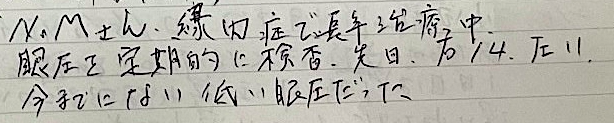 N.Mさん、緑内症で長年治療中.
眼圧を定期的に検査. 先日、右14. 左11.
今までにない低い眼圧だった